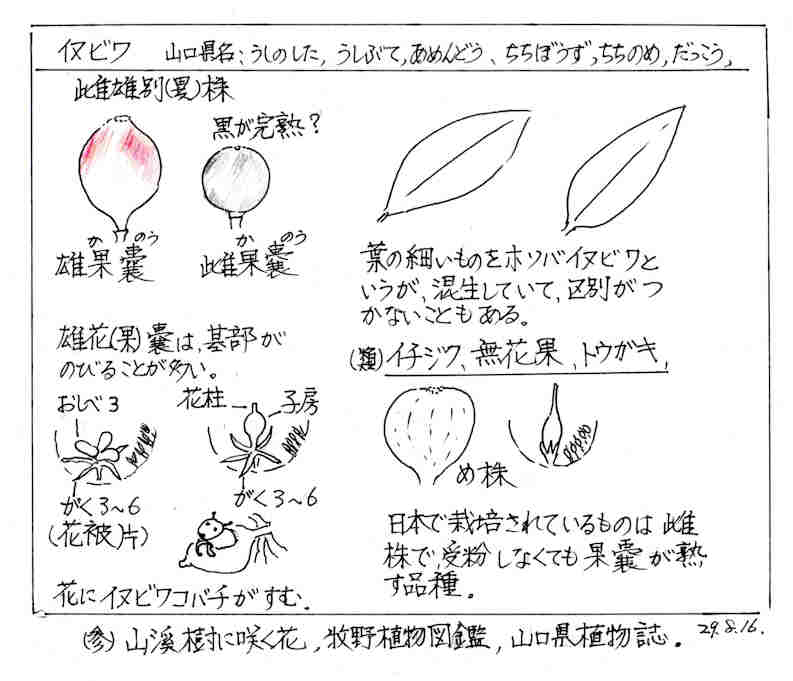 イヌビワ 山口県名:うしのした, うしぶて,あめんどう、ちちぼうず,ちちのめ,だっこう,
雌雄別(異)株
黒が完熟?
か のう
雄果嚢
か のう
雌果嚢
葉の細いものをホソバイヌビワと
いうが、混生していて、区別がつ
かないこともある。
雄花(果)嚢は,基部が
のびることが多い。
(類)イチジク、無花果、トウガキ,
おしべ3
花柱
子房
がく3~6
(花被)片)
がく3~6
め株
日本で栽培されているものは雌
株で,受粉しなくても果嚢が熟
す品種。
花にイヌビワコバチがすむ.
(参)山溪樹に咲く花,牧野植物図鑑,山口県植物誌。 29.8.16.